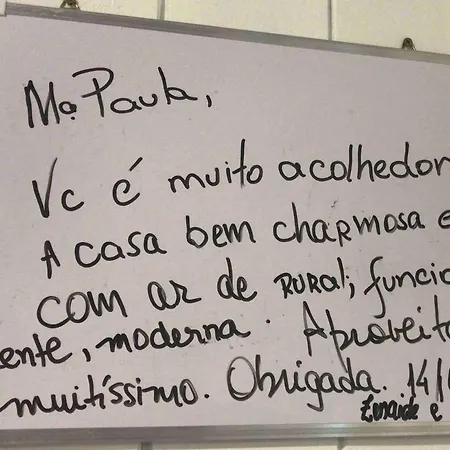 Mª Paula,
Vc é muito acolhedor
A casa bem charmosa e
com ar de rural; funcio
ente, moderna. Aproveito
muitíssimo. Obrigada. 14/
Zenaide e